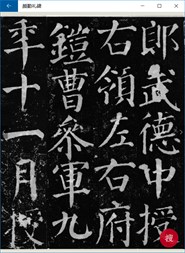 郎武德中授
右領左右府
鎧曹參軍九
年十一月授
搜